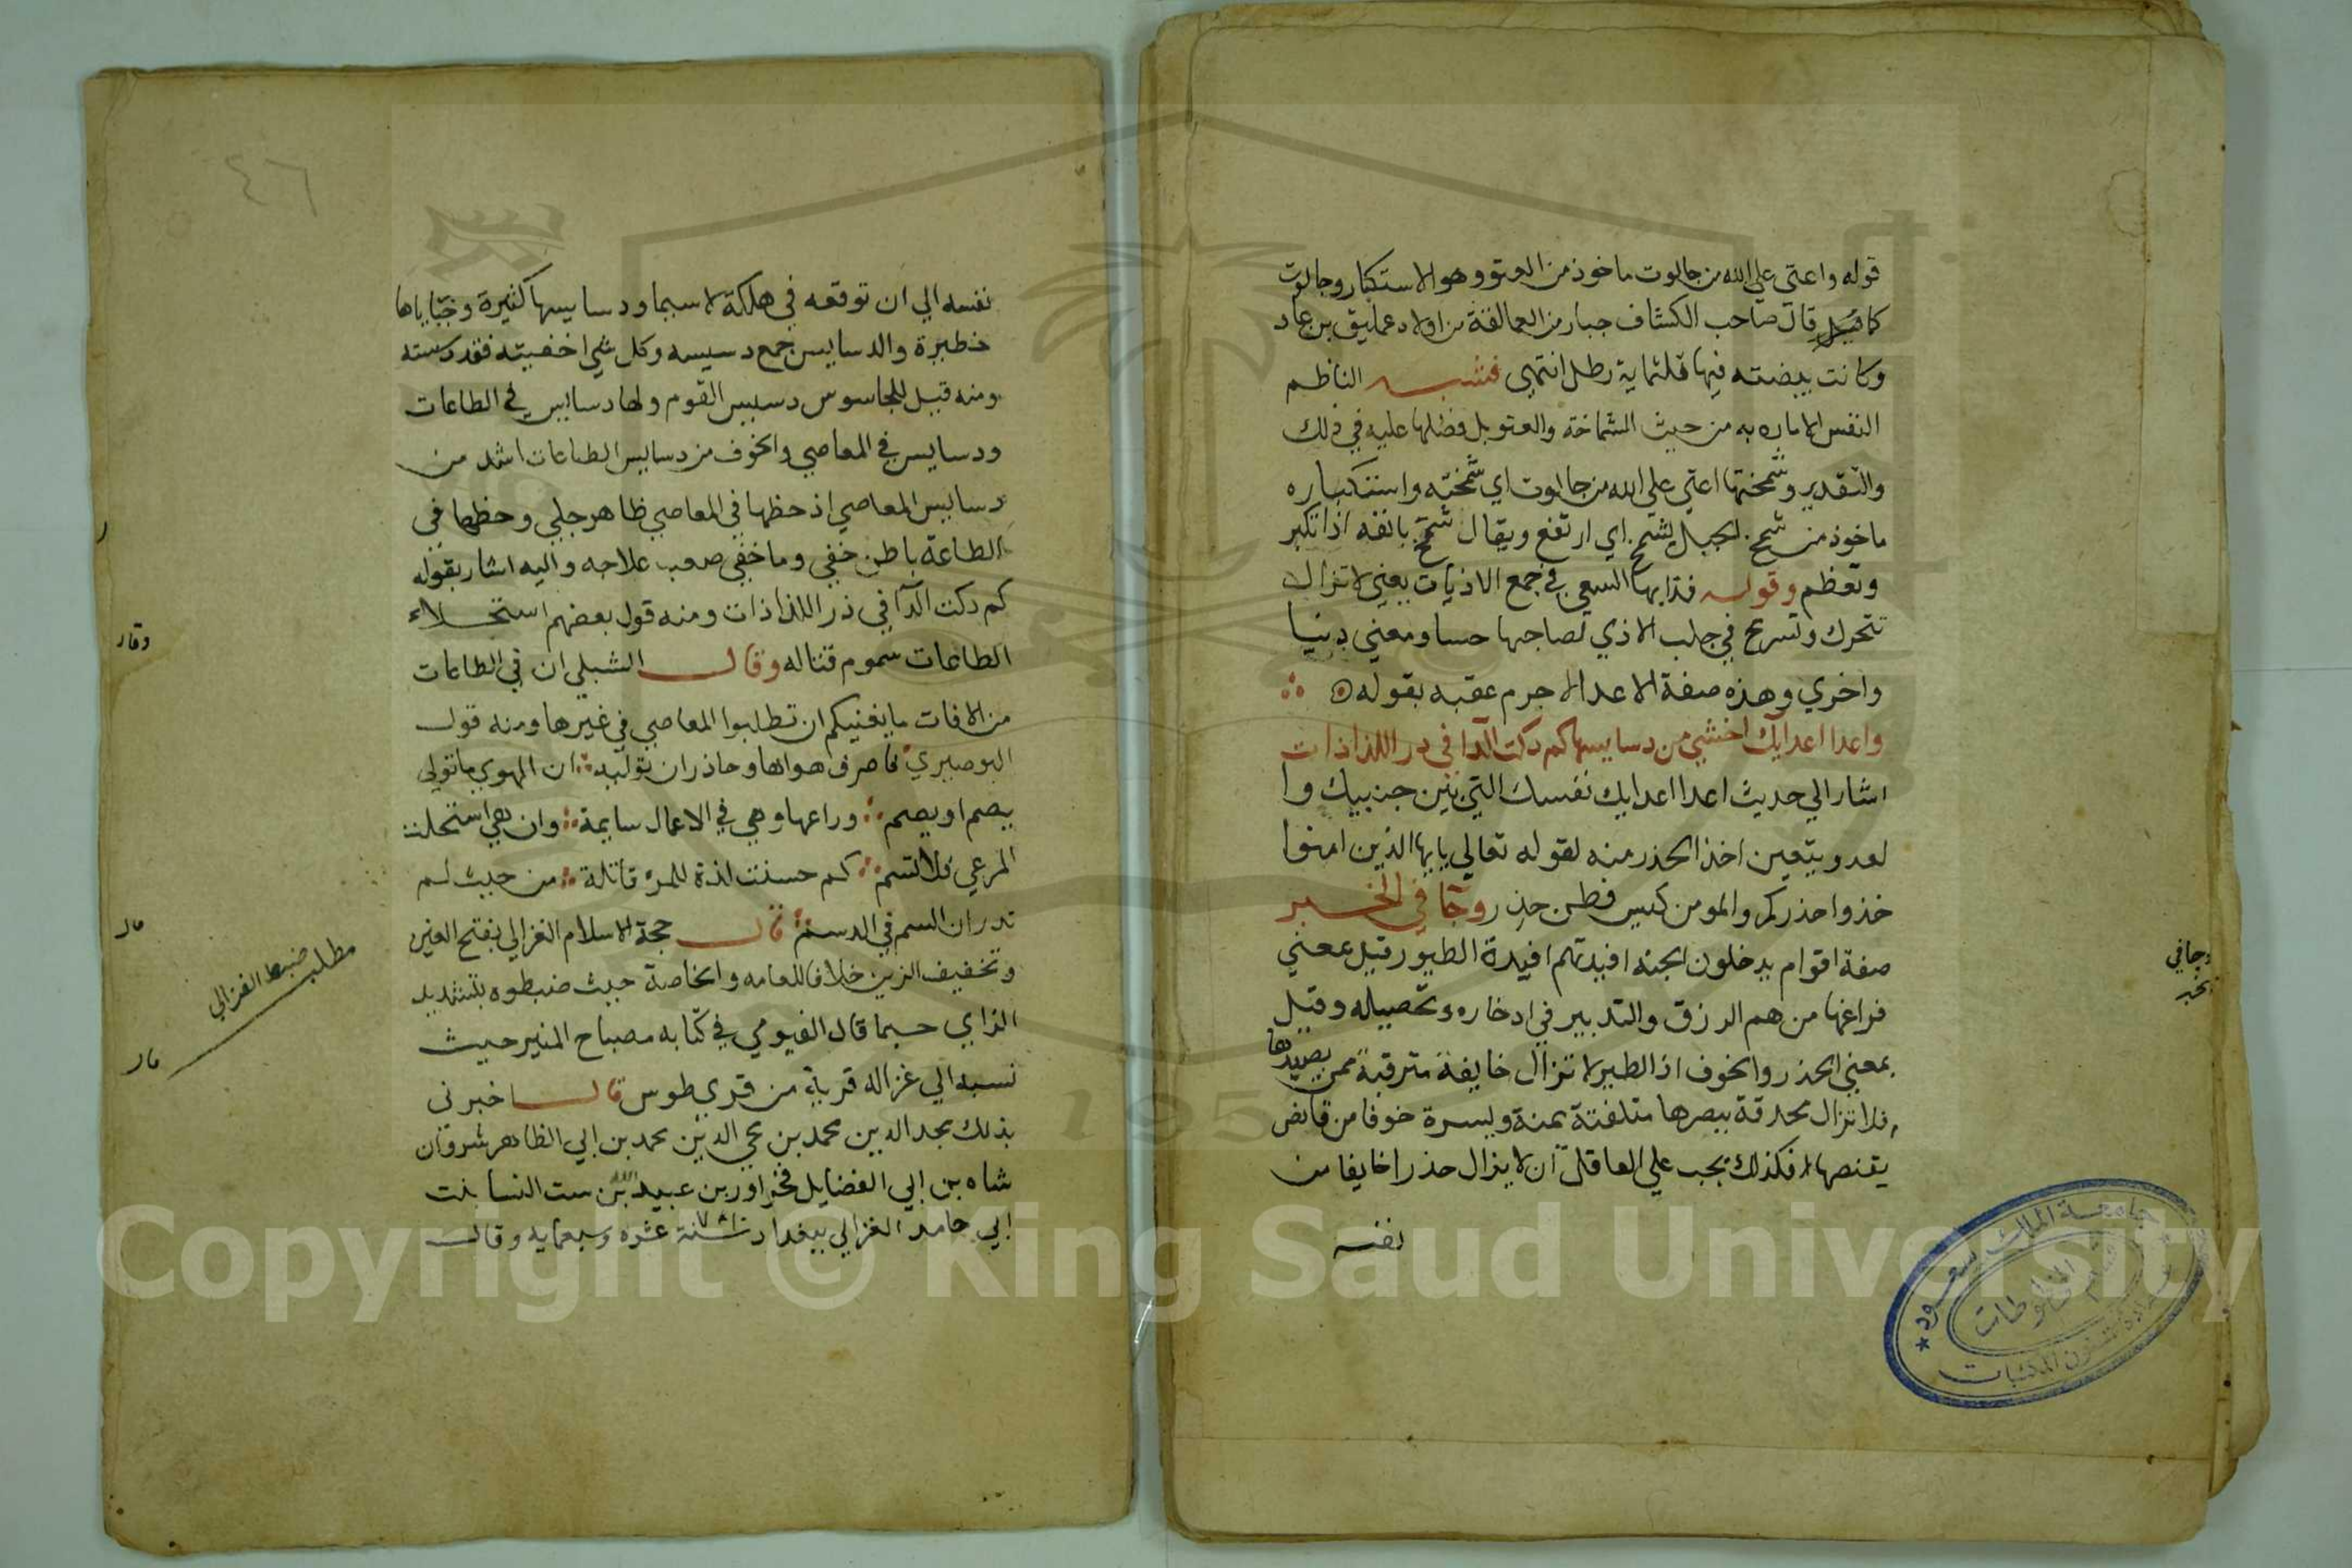 قوله واعتى علي الله من جالوت ماخوذ من العتو وهو الاستكبار وجالوت
كما قيل قال صاحب الكشاف جبار من العمالقة من اولاد عمليق بن عاد
وكانت بيضته فيها ثلثماية رطل انتهى فشبه الناظم
النفس الاماره به من حيث الشماخة والعتو بل فضلها عليه في ذلك
والتقدير وشمختها اعتى علي الله من جالوت اي شمخته واستكباره
ماخوذ من شمخ الجبل يشمخ اي ارتفع ويقال شمخ بانفه اذا تكبر
وتعظم وقوله فدابها السعي في جمع الاذيات يعني لا تزال
تتحرك وتسرع في جلب الاذي لصاحبها حسا ومعني دنيا
واخري وهذه صفة الاعدا لا جرم عقبه بقوله
واعدا اعدايك اخشي من دسايسها كم دكت الدا في در اللذاذات
اشار الي حديث اعدا اعدايك نفسك التي بين جنبيك وا
لعدو يتعين اخذ الحذر منه لقوله تعالي يايها الذين امنوا
خذوا حذركم والمومن كيس فطن حذر وجا في الخبر
صفة اقوام يدخلون الجنه افيدتهم افيدة الطيور قيل بمعني
فراغها من هم الرزق والتدبير في ادخاره وتحصيله وقيل
بمعني الحذر والخوف اذ الطير لا تزال خايفة مترقبة ممن يصيدها
فلا تزال محدقة ببصرها متلفتة يمنة ويسرة خوفا من قانص
يقنصها فكذلك يجب علي العاقل ان لا يزال حذرا خايفا من
نفسه
وجا في
الخبر
جامعة الملك سعود
قسم المخطوطات
عمادة شئون المكتبات
٤٦
نفسه الي ان توقعه في هلكة لا سيما ودسايسها كثيرة وخباياها
خطيرة والدسايس جمع دسيسه وكل شي اخفيته فقد دسسته
ومنه قيل للجاسوس دسيس القوم ولها دسايس في الطاعات
ودسايس في المعاصي والخوف من دسايس الطاعات اشد من
دسايس المعاصي اذ حظها في المعاصي ظاهر جلي وحظها في
الطاعة باطن خفي وما خفي صعب علاجه واليه اشار بقوله
كم دكت الدا في در اللذاذات ومنه قول بعضهم استحلاء
الطاعات سموم قتاله وقال الشبلي ان في الطاعات
من الافات ما يغنيكم ان تطلبوا المعاصي في غيرها ومنه قول
البوصيري فاصرف هواها وحاذر ان توليه ان الهوي ما تولي
يصم او يصم وراعها وهي في الاعمال سايمة وان هي استحلت
المرعي فلا تسم كم حسنت لذة للمرء قاتلة من حيث لم
تدر ان السم في الدسم قال حجة الاسلام الغزالي بفتح الغين
وتخفيف الزين خلافا للعامه والخاصة حيث ضبطوه بتشديد
الزاي حسبما قال الفيومي في كتابه مصباح المنير حيث
نسبه الي غزاله قرية من قري طوس قال اخبرني
بذلك مجد الدين محمد بن محي الدين محمد بن ابي الظاهر شروان
شاه بن ابي الفضايل فخراور بن عبيد الله بن ست النسا بنت
ابي حامد الغزالي ببغداد سنة عشره وسبعمايه وقال
وقال
قال
مطلب ضبط الغزالي
قال
Copyright © King Saud University
195